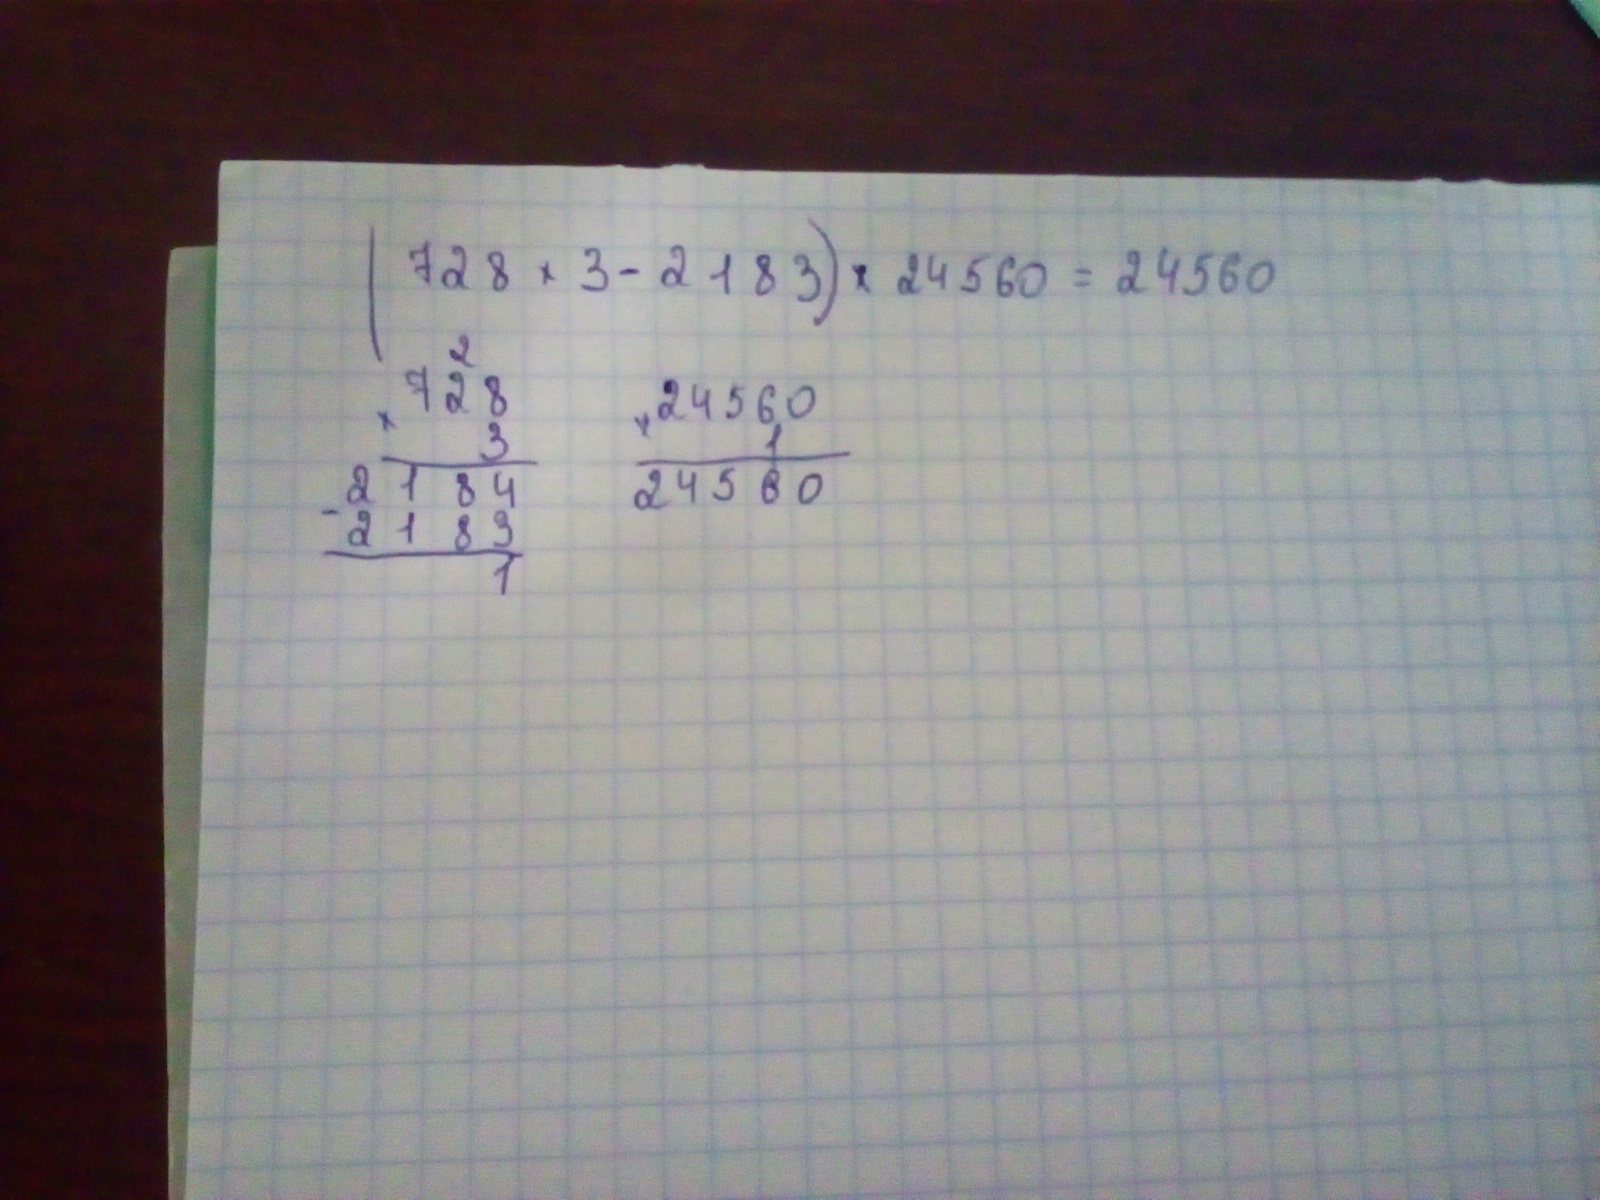 (728 × 3 - 2183) × 24560 = 24560
2
728
× 3
2184
- 2183
1
24560
× 1
24560